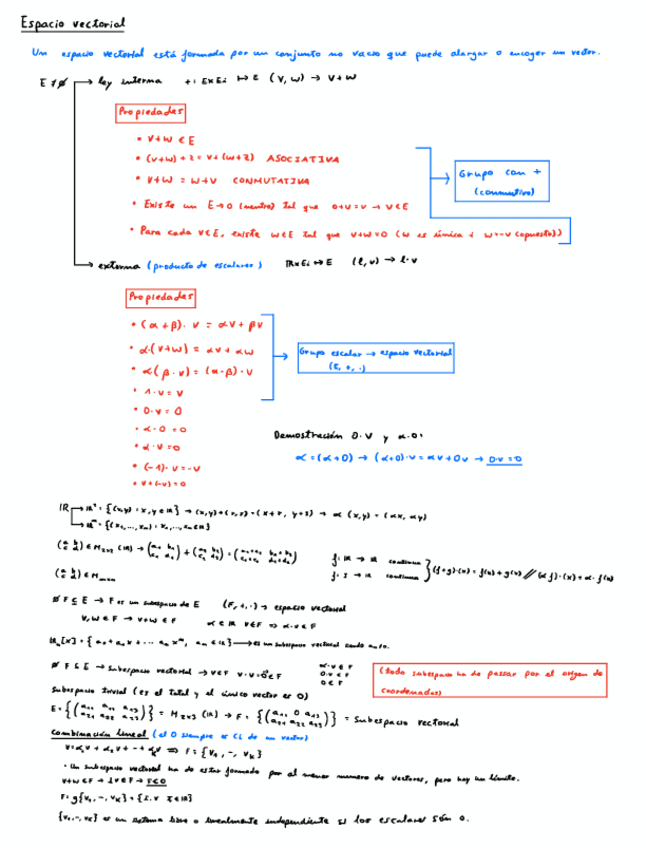 Espacio vectorial
Un espacio vectorial está formada por un conjunto no vacio que puede alargar o encoger un vector.
E ≠ ∅ → ley interna +: E×E: ↦ E (v, w) → v+w
Propiedades
• v+w ∈ E
• (v+w)+z = v+(w+z) ASOCIATIVA
• v+w = w+v CONMUTATIVA
• Existe un E→0 (neutro) tal que 0+v=v → v∈E
• Para cada v∈E, existe w∈E tal que v+w=0 (w es única i w=-v (opuesto))
Grupo con +
(conmutivo)
→ externa (producto de escalares) ℝ×E: ↦ E (l, v) → l·v
Propiedades
• (α+β)·v = αv+βv
• α·(v+w) = αv+αw
• α(β·v) = (α·β)·v
• 1·v=v
• 0·v=0
• α·0=0
• α·v=0
• (-1)·v=-v
• v+(-v)=0
Grupo escalar → espacio vectorial
(E, +, ·)
Demostración 0·v y α·0:
α=(α+0) → (α+0)·v=αv+0v → 0·v=0
ℝ → ℝ² = {(x,y) : x,y ∈ ℝ} → (x,y)+(z,s)=(x+z, y+s) → α(x,y)=(αx, αy)
→ ℝⁿ = {(x₁,...,xₙ) : x₁,...,xₙ ∈ ℝ}
f: ℝ → ℝ continua
f: I → ℝ continua
(f+g)·(x) = f(x)+g(x) // (αf)·(x) = α·f(x)
∅ F ⊆ E → F es un subespacio de E (F,+,·) → espacio vectorial
v,w ∈ F → v+w ∈ F α∈ℝ v∈F ⇒ α·v∈F
→ es un subespacio vectorial
∅ F ⊆ E → Subespacio vectorial → v∈F
α·v∈F
0·v∈F
0∈F
(todo subespacio ha de passar por el origen de
coordenadas)
Subespacio trivial (es el total y el único vector es 0)
= Subespacio vectorial
Combinación lineal (el 0 siempre es CL de un vector)
• Un subespacio vectorial ha de estar formado por al menor numero de vectores, pero hay un límite.
{v₁,-,vₖ} es un sistema libre o linealmente independiente si los escalares són 0.